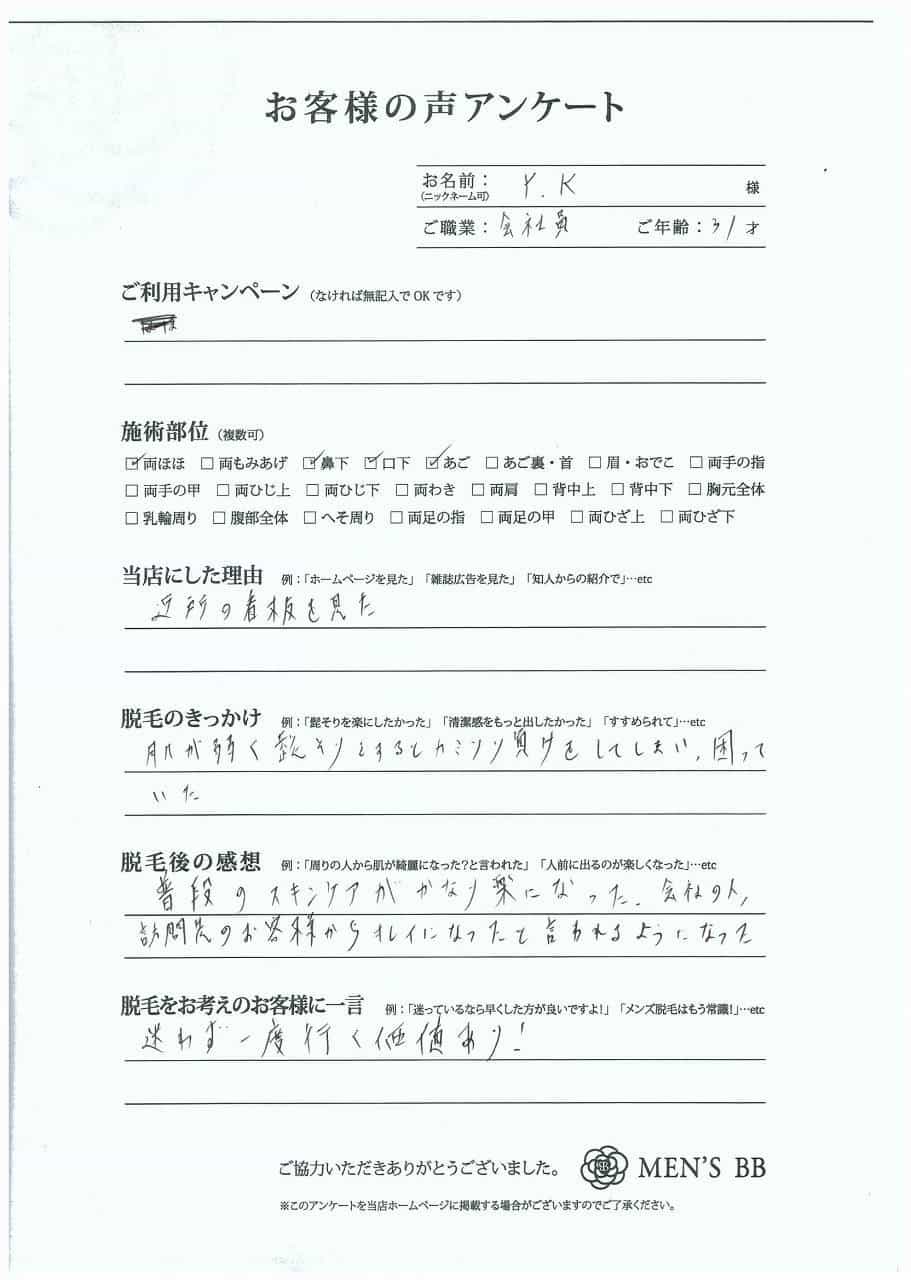 お客様の声アンケート
お名前： Y.K 様
(ニックネーム可)
ご職業：会社員 ご年齢：31才
ご利用キャンペーン（なければ無記入でOKです）
施術部位（複数可）
☑両ほほ □両もみあげ ☑鼻下 ☑口下 ☑あご □あご裏・首 □眉・おでこ □両手の指
□両手の甲 □両ひじ上 □両ひじ下 □両わき □両肩 □背中上 □背中下 □胸元全体
□乳輪周り □腹部全体 □へそ周り □両足の指 □両足の甲 □両ひざ上 □両ひざ下
当店にした理由 例：「ホームページを見た」「雑誌広告を見た」「知人からの紹介で」…etc
近所の看板を見た
脱毛のきっかけ 例：「髭そりを楽にしたかった」「清潔感をもっと出したかった」「すすめられて」…etc
肌が弱く髭そりをするとカミソリ負けをしてしまい、困って
いた
脱毛後の感想 例：「周りの人から肌が綺麗になった?と言われた」「人前に出るのが楽しくなった」…etc
普段のスキンケアがかなり楽になった。会社の人,
訪問先のお客様からキレイになったと言われるようになった
脱毛をお考えのお客様に一言 例：「迷っているなら早くした方が良いですよ!」「メンズ脱毛はもう常識!」…etc
迷わず一度行く価値あり!
ご協力いただきありがとうございました。 MEN'S BB
※このアンケートを当店ホームページに掲載する場合がございますのでご了承ください。